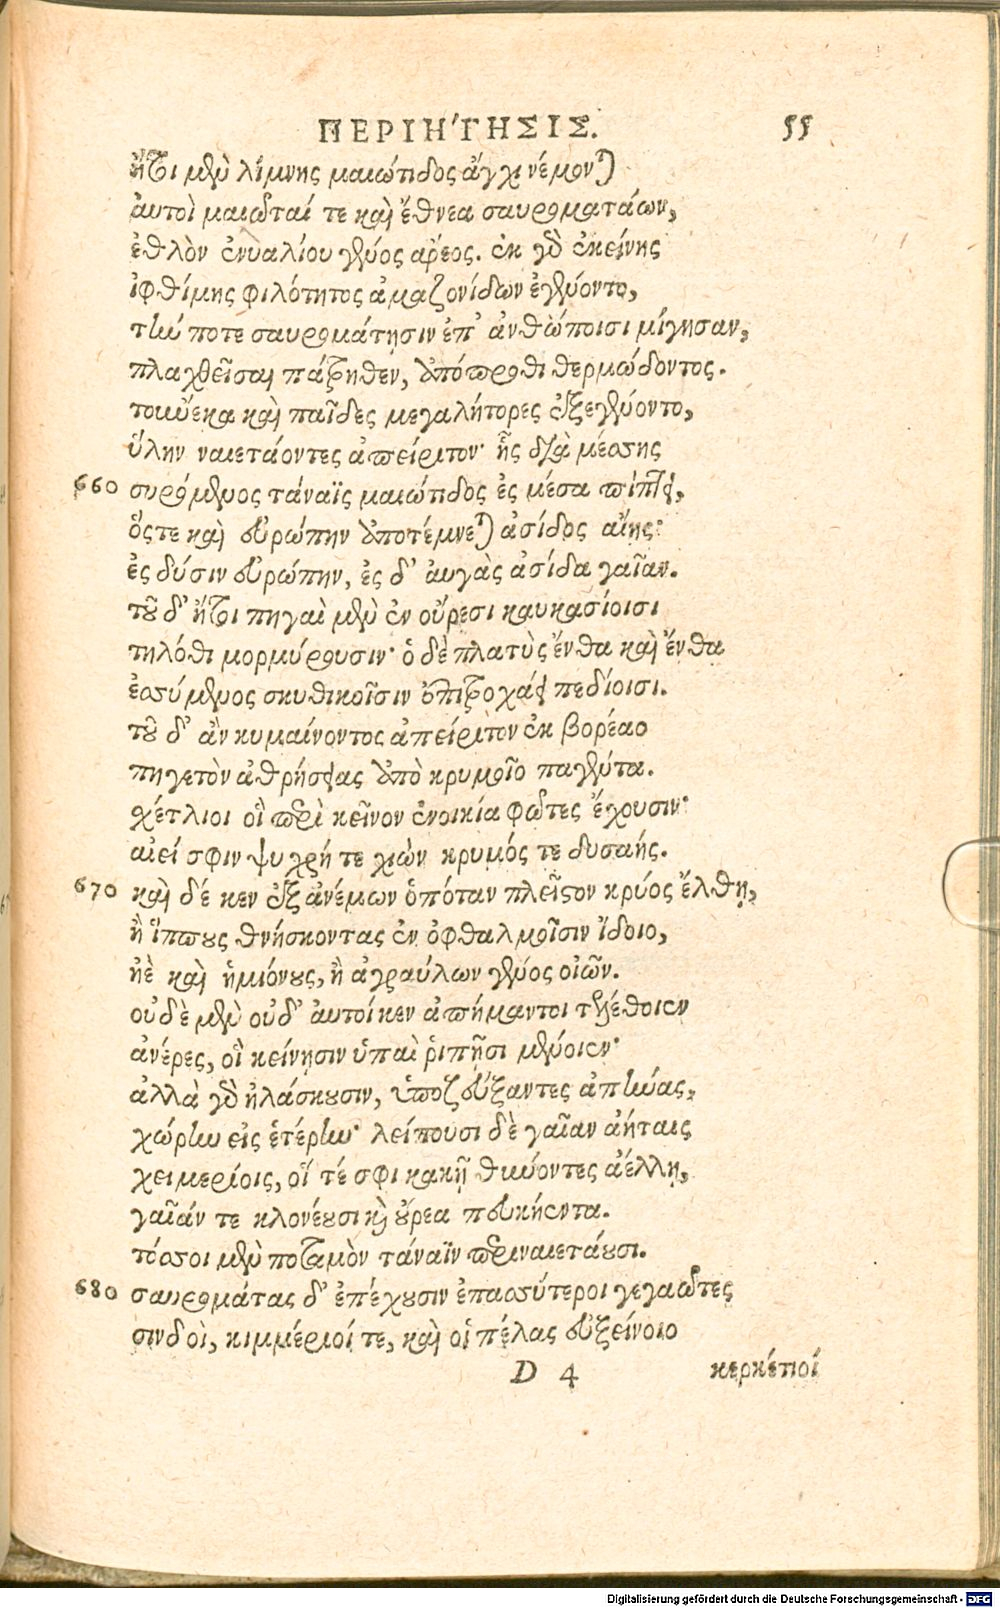 ΠΕΡΙΗΓΗΣΙΣ. 55
ἤτοι μὲν λίμνης μαιώτιδος ἄγχι νέμονται
αὐτοὶ μαιῶταί τε καὶ ἔθνεα σαυροματάων,
ἐσθλὸν ἐνυαλίου γένος ἄρεος. ἐκ γὰρ ἐκείνης
ἰφθίμης φιλότητος ἀμαζονίδων ἐγένοντο,
τήν ποτε σαυρομάτησιν ἐπ' ἀνθρώποισι μίγησαν,
πλαχθεῖσαι πάτρηθεν, ἀπόπροθι θερμώδοντος.
τοὔνεκα καὶ παῖδες μεγαλήτορες ἐξεγένοντο,
ὕλην ναιετάοντες ἀπείριτον· ἧς διὰ μέσσης
660 συρόμενος τάναϊς μαιώτιδος ἐς μέσα πίπτει,
ὅστε καὶ εὐρώπην ἀποτέμνεται ἀσίδος αἴης·
ἐς δύσιν εὐρώπην, ἐς δ' αὐγὰς ἀσίδα γαῖαν.
τοῦ δ' ἤτοι πηγαὶ μὲν ἐν οὔρεσι καυκασίοισι
τηλόθι μορμύρουσιν· ὁ δὲ πλατὺς ἔνθα καὶ ἔνθα
ἐσσύμενος σκυθικοῖσιν ἐπιτροχάει πεδίοισι.
τοῦ δ' ἂν κυμαίνοντος ἀπείριτον ἐκ βορέαο
πηγετὸν ἀθρήσειας ὑπὸ κρυμοῖο παγέντα.
σχέτλιοι οἳ περὶ κεῖνον ἐνοικία φῶτες ἔχουσιν·
αἰεί σφιν ψυχρή τε χιὼν κρυμός τε δυσαής.
670 καὶ δέ κεν ἐξ ἀνέμων ὁπόταν πλεῖστον κρύος ἔλθῃ,
ἢ ἵππους θνήσκοντας ἐν ὀφθαλμοῖσιν ἴδοιο,
ἠὲ καὶ ἡμιόνους, ἢ ἀγραύλων γένος οἰῶν.
οὐδὲ μὲν οὐδ' αὐτοί κεν ἀπήμαντοι τελέθοιεν
ἀνέρες, οἳ κείνῃσιν ὑπαὶ ῥιπῇσι μένοιεν·
ἀλλὰ γὰρ ἠλάσκουσιν, ὑποζεύξαντες ἀπήνας,
χώρην εἰς ἑτέρην· λείπουσι δὲ γαῖαν ἀήταις
χειμερίοις, οἵ τέ σφι κακῇ θύνοντες ἀέλλῃ,
γαῖάν τε κλονέουσι καὶ οὔρεα πευκήεντα.
τόσσοι μὲν ποταμὸν τάναϊν περιναιετάουσι.
680 σαυρομάτας δ' ἐπέχουσιν ἐπασσύτεροι γεγαῶτες
σινδοὶ, κιμμέριοί τε, καὶ οἱ πέλας εὐξείνοιο
D 4 κερκέτιοί
Digitalisierung gefördert durch die Deutsche Forschungsgemeinschaft - DFG